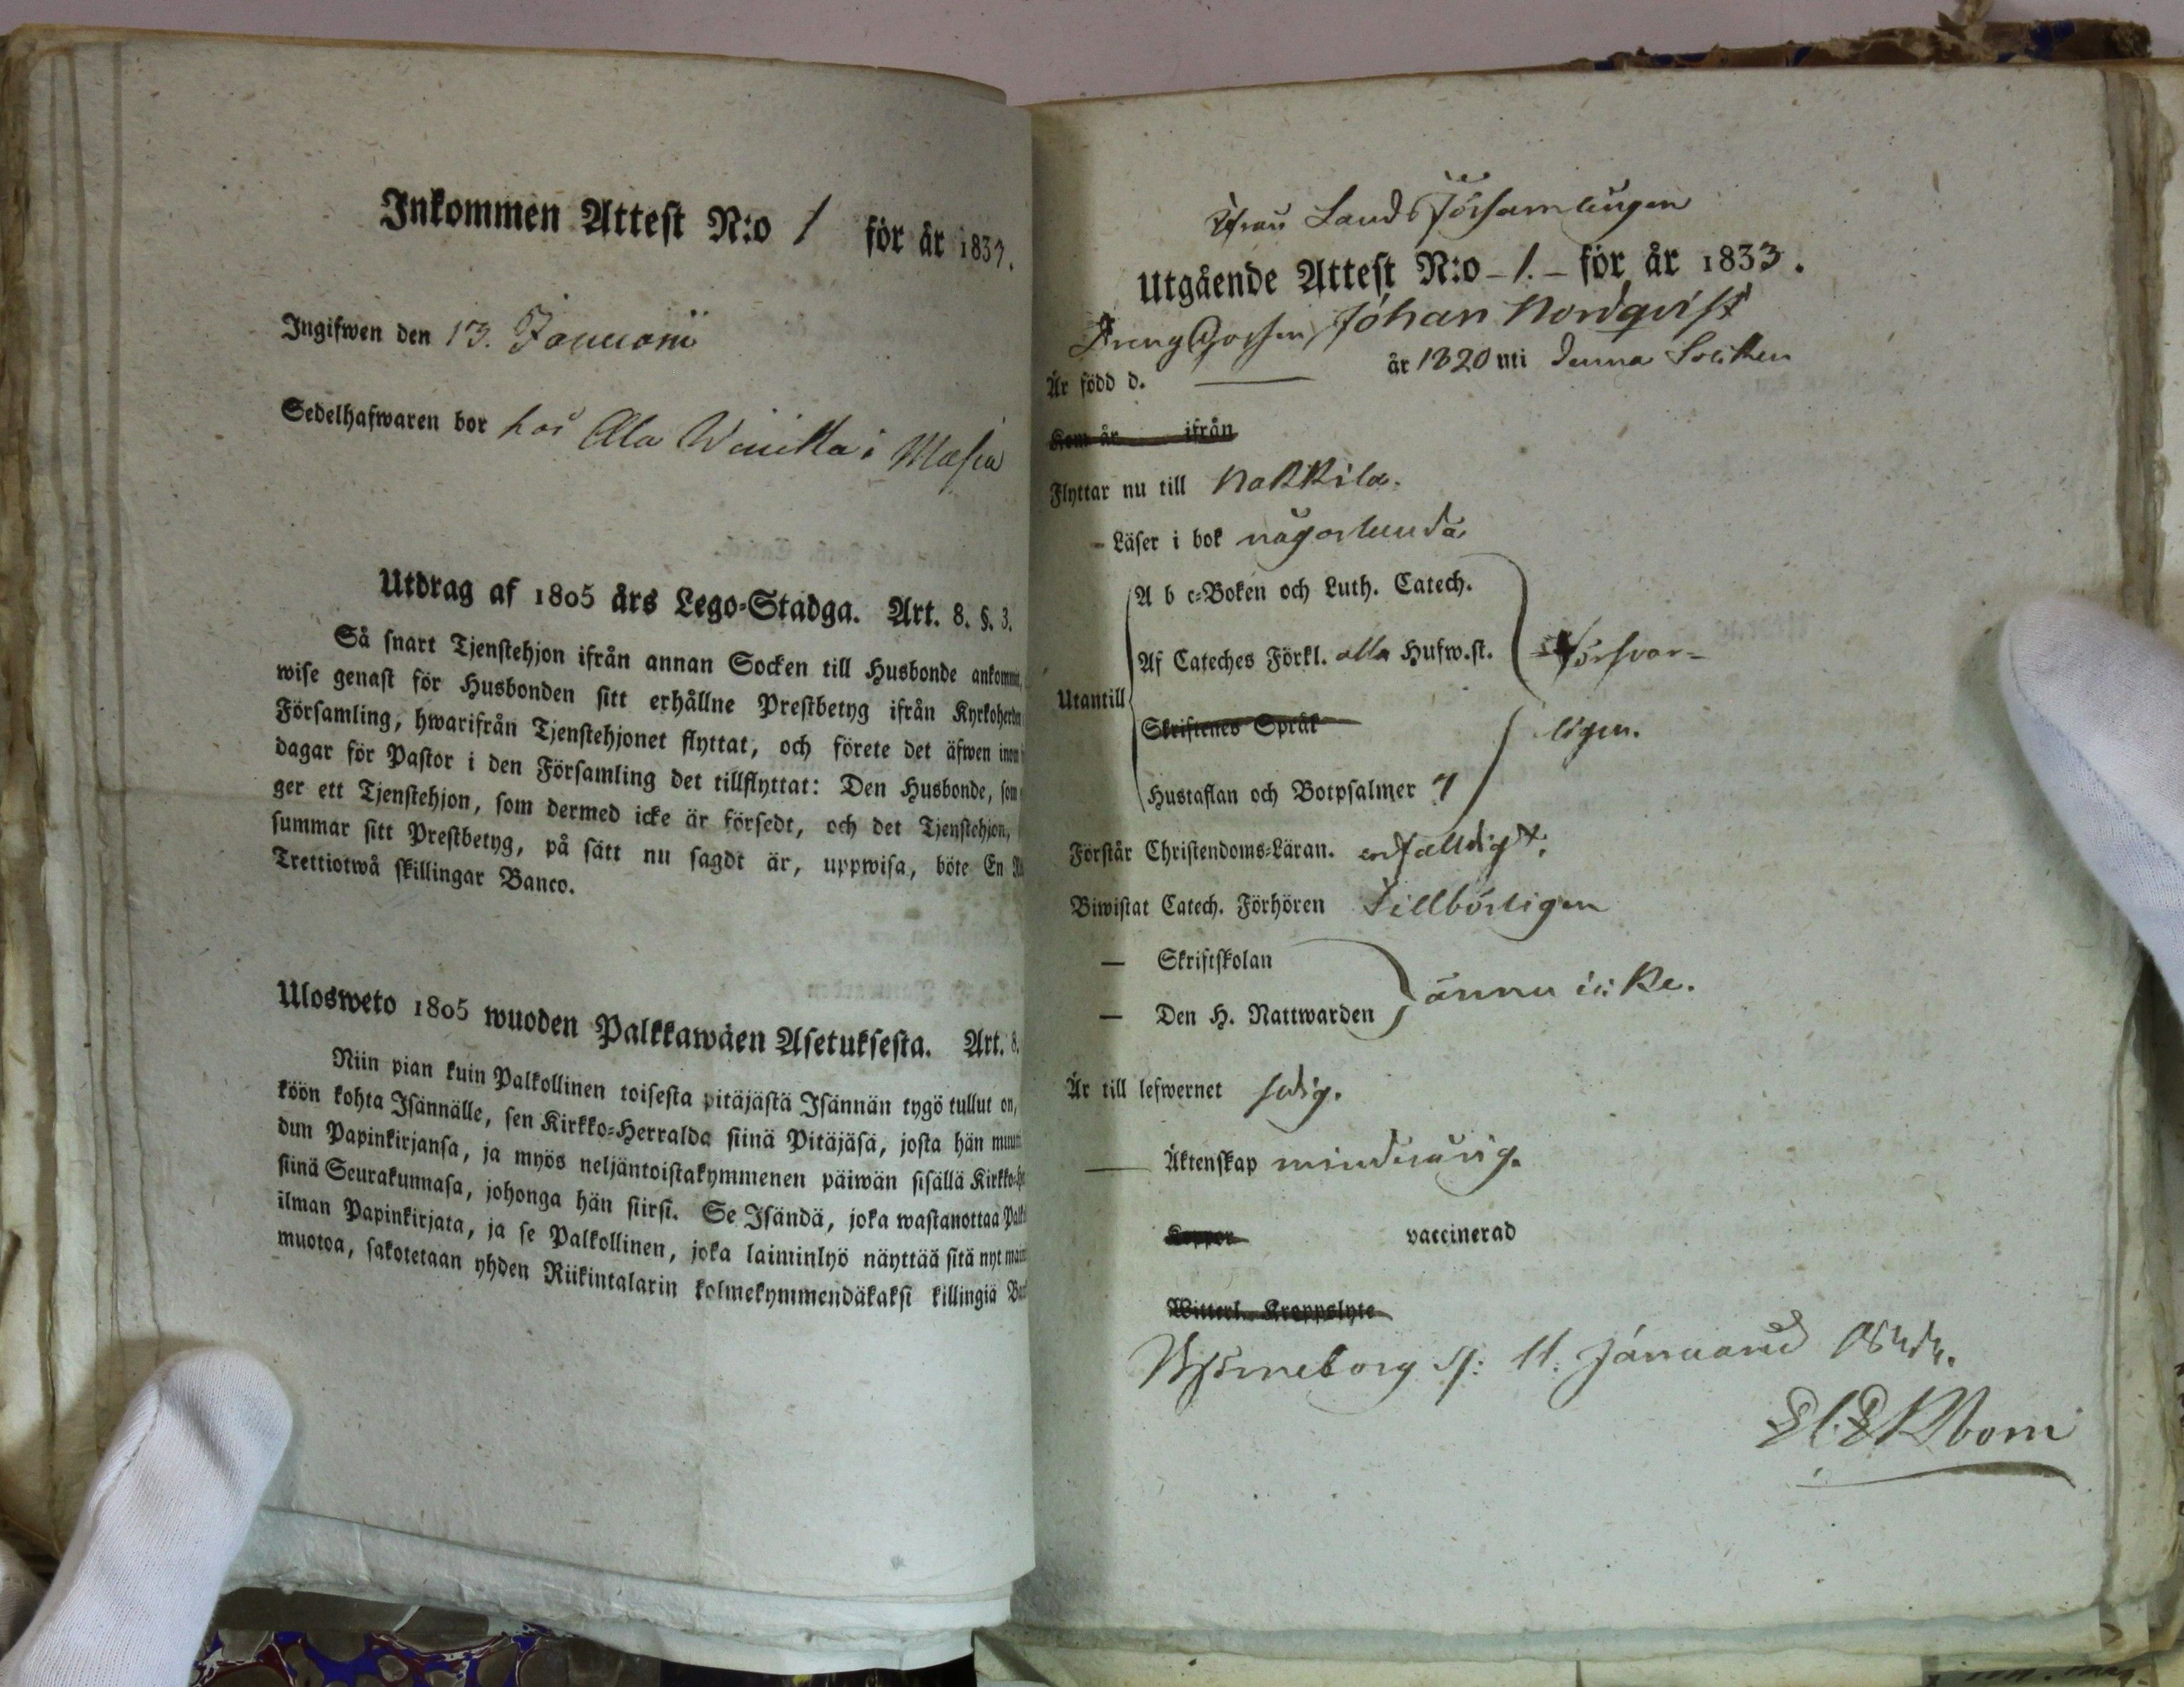 Inkommen Attest N:o 1 för år 1833.
Ingifwen den 13. Januarii
Sedelhafwaren bor hos Ala Winikka i Masia
Utdrag af 1805 års Lego-Stadga. Art. 8. §. 3.
Så snart Tjenstehjon ifrån annan Socken till Husbonde ankommit,
wise genast för Husbonden sitt erhållne Prestbetyg ifrån Kyrkoherden
Församling, hwarifrån Tjenstehjonet flyttat, och förete det äfwen inom
dagar för Pastor i den Församling det tillflyttat: Den Husbonde, som
ger ett Tjenstehjon, som dermed icke är försedt, och det Tjenstehjon,
summar sitt Prestbetyg, på sätt nu sagdt är, uppwisa, böte En
Trettiotwå skillingar Banco.
Ulosweto 1805 wuoden Palkkawäen Asetuksesta. Art. 8.
Niin pian kuin Palkollinen toisesta pitäjästä Isännän tygö tullut on,
köön kohta Isännälle, sen Kirkko-Herralda siinä Pitäjäsä, josta hän muut
dun Papinkirjansa, ja myös neljäntoistakymmenen päiwän sisällä Kirkko-He
siinä Seurakunnasa, johonga hän siirsi. Se Isändä, joka wastanottaa Palk
ilman Papinkirjata, ja se Palkollinen, joka laiminlyö näyttää sitä nyt main
muotoa, sakotetaan yhden Riikintalarin kolmekymmendäkaksi killingiä Ban
Från Lands Församlingen
Utgående Attest N:o 1. för år 1833.
Dreng Gossen Johan Nordqvist
Är född d. — år 1820 uti denna Socken
Kom år ifrån
Flyttar nu till Nakkila.
Läser i bok någorlunda
A b c-Boken och Luth. Catech.
Af Cateches Förkl. alla Hufw.st. Försvar-
Utantill
Skriftenes Språk
ligen.
Hustaflan och Botpsalmer 7
Förstår Christendoms-Läran. enfalldigt.
Biwistat Catech. Förhören Tillbörligen
— Skriftskolan
— Den H. Nattwarden ännu icke.
Är till lefwernet sedig.
— Äktenskap minderårig.
Koppor vaccinerad
Witterl. Kroppslyte
Björneborg d: 11. Januarii